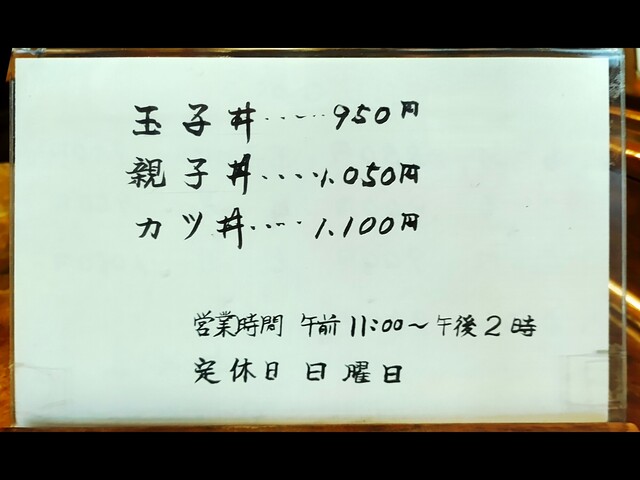 玉子丼……950円
親子丼....1.050円
カツ丼..... 1.100円
営業時間 午前11:00~午後2時
定休日 日曜日